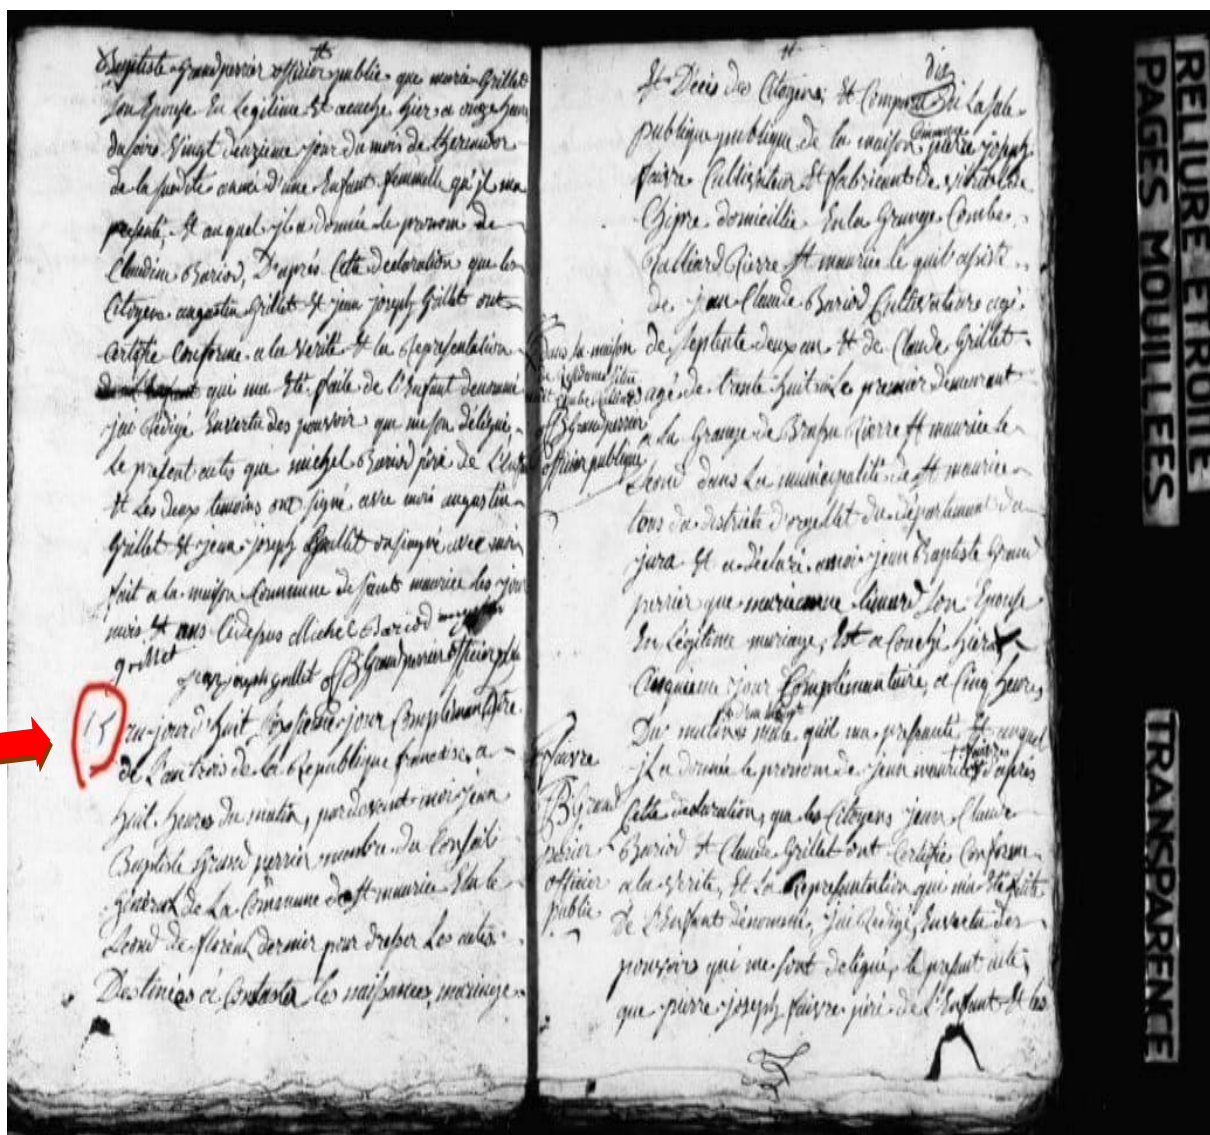 Baptiste Grandperrier officier public que marie Grillet
son Epouse En Legitime Et acuche hier a onze heure
du soire Vingt deuzieme jour du mois de thermidor
de la susdite anné d'une Enfant femmelle qu'il ma
présenté, Et auquel il a donnée le prenom de
Claudine Bariod, D'après Cette declaration que les
Citoyens augustin Grillet Et jean joseph Grillet ont
Certifie Conforme a la Verité Et la Representation
qui ma Eté faite de l'Enfant denommé
jai Rédigé Envertu des pouvoir que me son délégué
Le present actes que michel Bariod père de L'
Et Les deux temoins ont signé avec moi augustin
Grillet Et jean joseph Grillet on signé avec moi
fait a la maison Commune de saint maurice les jour
mois Et ans Cidesus Michel Bariod
grillet
jean joseph grillet JB Grand perrier officier
15 aujourd'huit Sixsieme jour Complémentaire
de L'an trois de la Republique francaise, a
huit heures du matin, pardevant moi jean
Baptiste Grand perrier membre du Conseil
Général de La Commune de St maurice Elu le
de floréal dernier pour dresser Les actes
Destinées a Constater les naissances, mariage
Et Décès des Citoyens, Et Comparu En La sale
publique publique de la maison Commune pierre joseph
faivre Cultivateur Et fabricant de
domicillie En la Grange Combe
Gailliard Pierre St maurice le quel assisté
de jean Claude Bariod Cultivateure agé
de septente deux an Et de Claude Grillet
agé de trante huit an Le premier demeurant
a la Grange de Pierre St maurice le
segond dans La municipalité de St maurice
tous du districte d'orgellet du département du
jura Et a déclaré amoi jean Baptiste Grand
perrier que marianne son Epouse
En Légitime mariage, Est acouché hier
Cinquieme jour Complémentaire, a Cinq heures
Du matin male qu'il ma présenté Et auquel
il a donnée le pronom de jean maurice faivre d'après
Cette declaration, que les Citoyens jean Claude
Bariod Et Claude Grillet ont Certifié Conforme
a la Verite, Et La Representation qui ma Eté faite
de l'Enfant dénommé, jai Redigé, Envertu des
pouvoirs qui me sont delegué, le présent acte
que pierre joseph faivre père de l'Enfant Et les
Dans la maison
JB Grand perrier
officier publique
faivre
JB Grand
périer
officier
public
RELIURE ETROITE
PAGES MOUILLEES
TRANSPARENCE